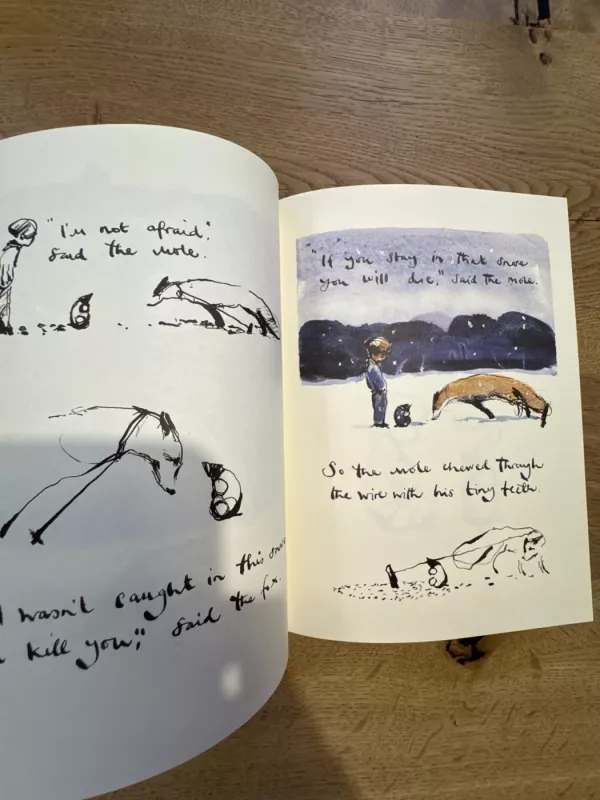 "I'm not afraid,"
said the mole.
wasn't caught in this snare
kill you," said the fox.
"If you stay in that snare
you will die," said the mole.
So the mole chewed through
the wire with his tiny teeth.